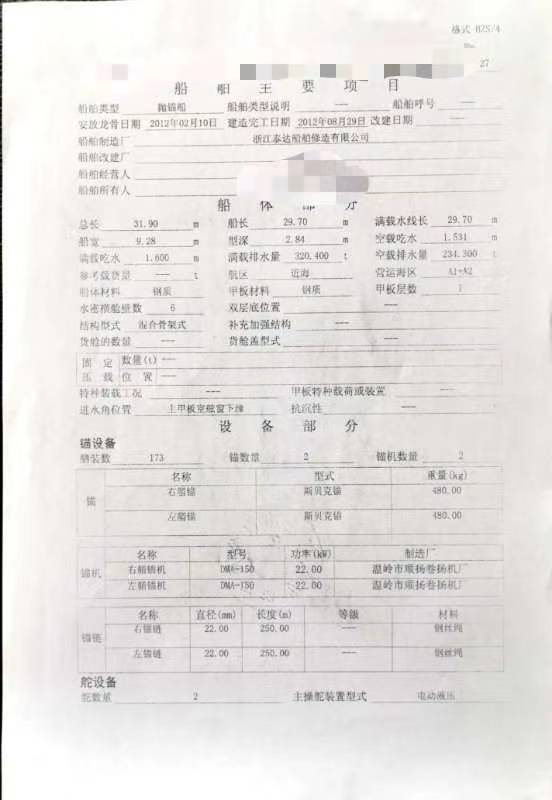 格式 HZS/4
27
船 舶 主 要 项 目
船舶类型 抛锚船 船舶类型说明 --- 船舶呼号 ---
安放龙骨日期 2012年02月10日 建造完工日期 2012年08月29日 改建日期 ---
船舶制造厂 浙江泰达船舶修造有限公司
船舶改建厂
船舶经营人
船舶所有人
船 体 部 分
总长 31.90 m 船长 29.70 m 满载水线长 29.70 m
船宽 9.28 m 型深 2.84 m 空载吃水 1.531 m
满载吃水 1.600 m 满载排水量 320.400 t 空载排水量 234.300 t
参考载货量 --- t 航区 近海 营运海区 A1+A2
船体材料 钢质 甲板材料 钢质 甲板层数 1
水密横舱壁数 6 双层底位置 ---
结构型式 混合骨架式 补充加强结构 ---
货舱的数量 --- 货舱盖型式 ---
固定 数量(t) ---
压载 位置 ---
特种装载工况 --- 甲板特种载荷或装置 ---
进水角位置 主甲板室舷窗下缘 抗沉性 ---
设 备 部 分
锚设备
舾装数 173 锚数量 2 锚机数量 2
名称 型式 重量(kg)
锚 右艏锚 斯贝克锚 480.00
左艏锚 斯贝克锚 480.00
名称 型号 功率(kW) 制造厂
锚机 右艏锚机 DMA-150 22.00 温岭市顺扬卷扬机厂
左艏锚机 DMA-150 22.00 温岭市顺扬卷扬机厂
名称 直径(mm) 长度(m) 等级 材料
锚链 右锚链 22.00 250.00 --- 钢丝绳
左锚链 22.00 250.00 --- 钢丝绳
舵设备
舵数量 2 主操舵装置型式 电动液压